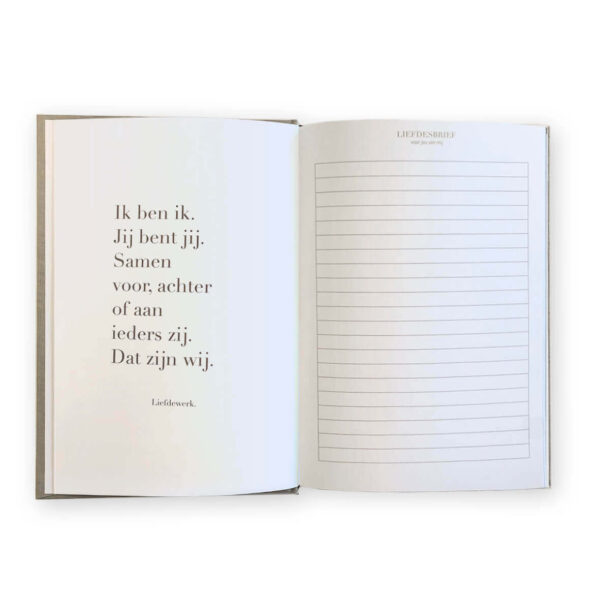 Ik ben ik.
Jij bent jij.
Samen
voor, achter
of aan
ieders zij.
Dat zijn wij.
Liefdewerk.
LIEFDESBRIEF
voor jou van mij